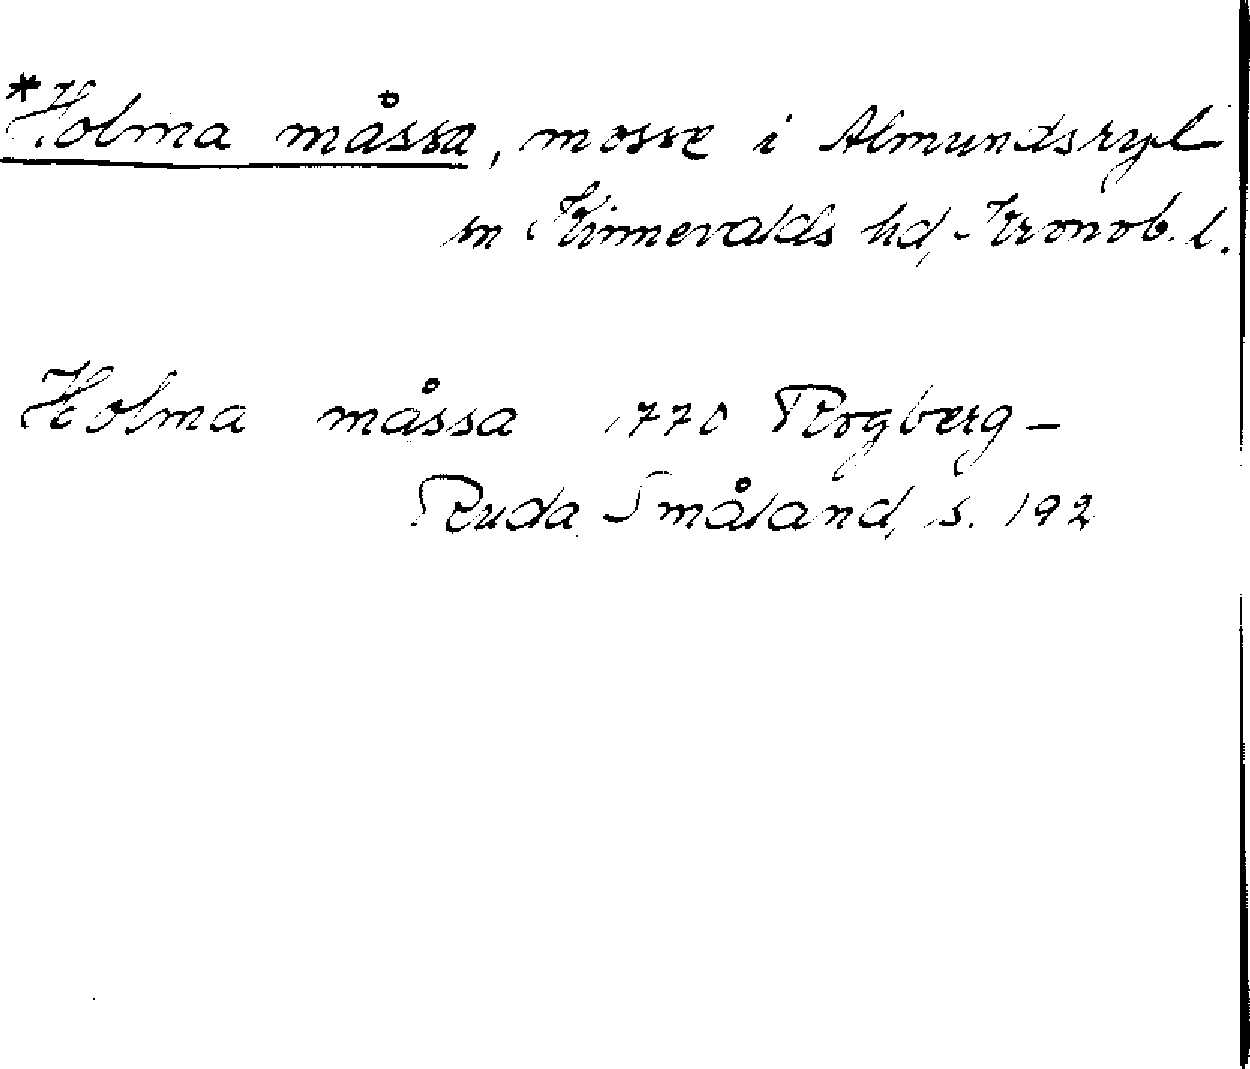 *Holma måssa, mosse i Almundsryd
sn Kinnevalds hd, Kronob. l.
Holma måssa 1770 Rogberg-
Ruda Småland, s. 192